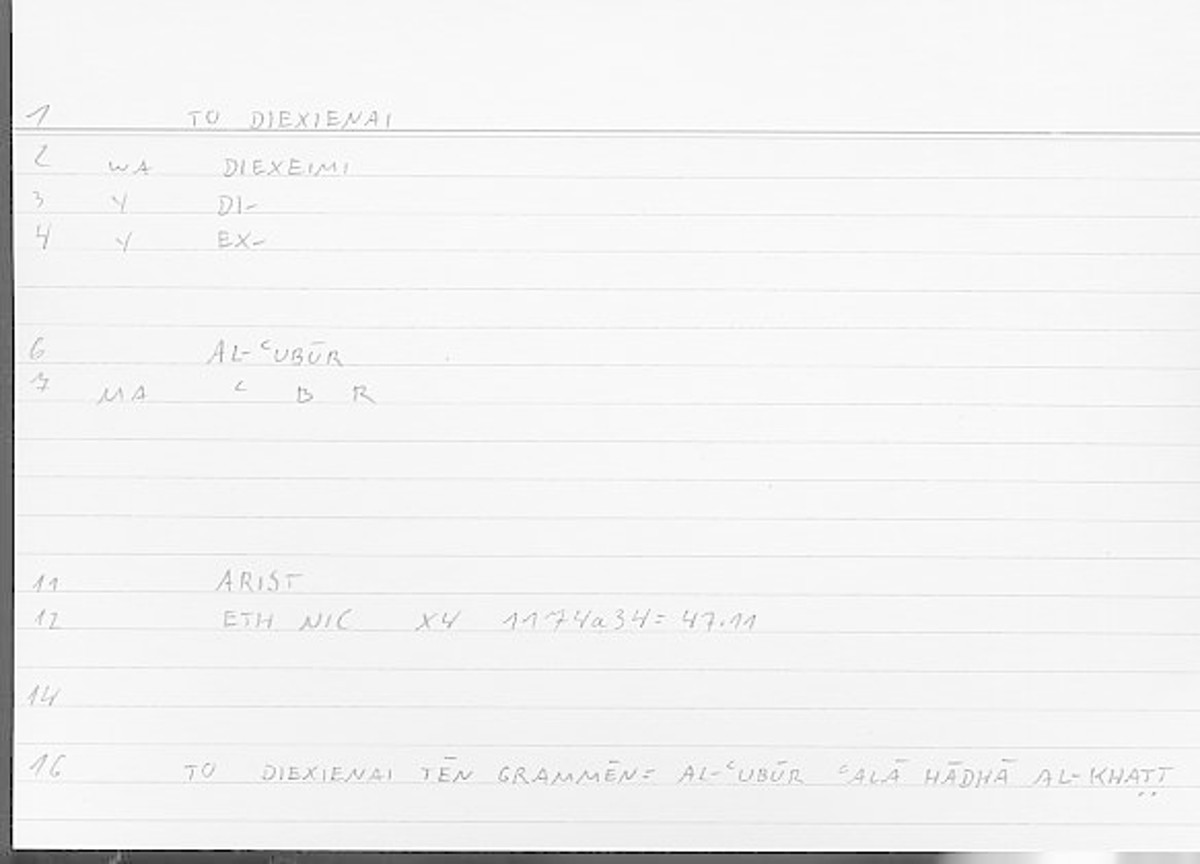 1 TO DIEXIENAI
2 WA DIEXEIMI
3 Y DI-
4 Y EX-
6 AL-ʿUBŪR
7 MA ʿ B R
11 ARIST
12 ETH NIC X4 1174a34= 47.11
14
16 TO DIEXIENAI TĒN GRAMMĒN= AL-ʿUBŪR ʿALĀ HĀDHĀ AL-KHAṬṬ